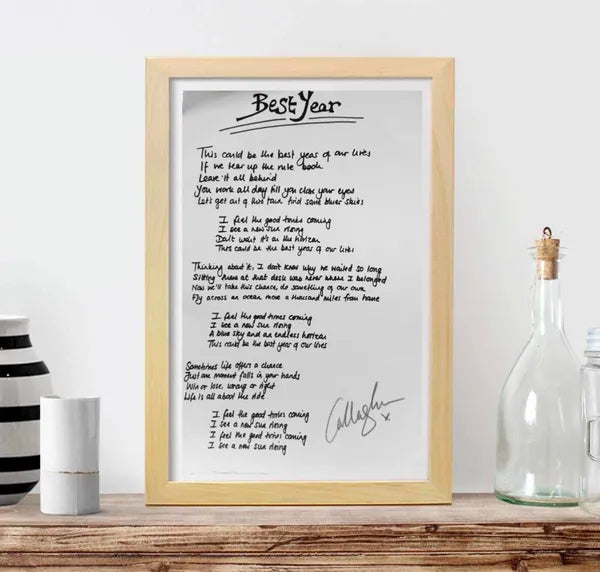 Best Year
This could be the best year of our lives
If we tear up the rule book
Leave it all behind
You work all day till you close your eyes
Let's get out of this town find some bluer skies
I feel the good times coming
I see a new sun rising
Don't want it's on the horizon
This could be the best year of our lives
Thinking about it, I don't know why we waited so long
Sitting there at that desk was never where I belonged
Now we'll take this chance, do something of our own
Fly across an ocean move a thousand miles from home
I feel the good times coming
I see a new sun rising
A blue sky and an endless horizon
This could be the best year of our lives
Sometimes life offers a chance
Just one moment falls in your hands
Win or lose, wrong or right
Life is all about the ride
I feel the good times coming
I see a new sun rising
I feel the good times coming
I see a new sun rising
Callaghan x